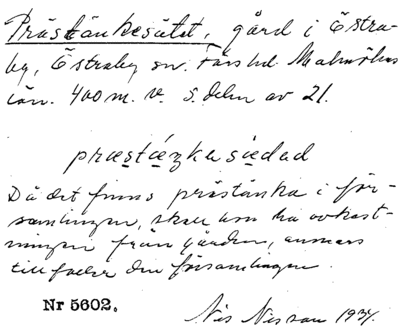 Prästänkesätet, gård i Östra-
by, Östraby sn. Färs hd Malmöhus
län. 400 m. v. S. delen av 21.
præstæŋkasiedad
Då det finns prästänka i för-
samlingen, skall hon ha avkast-
ningen från gården, annars
tillfaller den församlingen.
Nr 5602.
Nils Nilsson 1934.